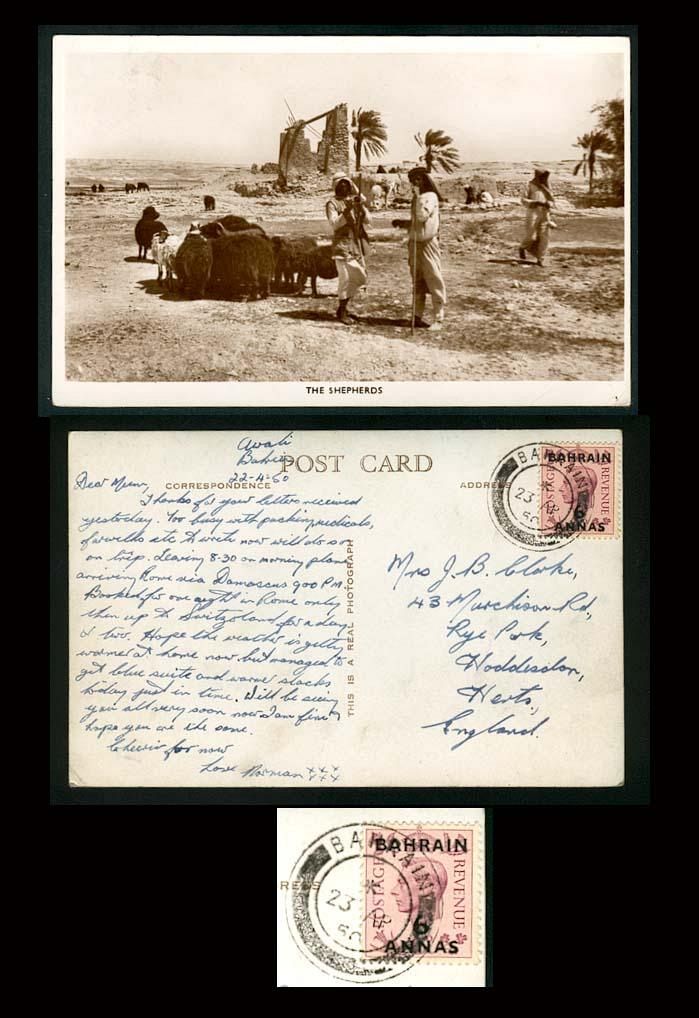 THE SHEPHERDS
Awali
Bahrein
22-4-50
POST CARD
CORRESPONDENCE
ADDRESS
BAHRAIN
23 AP
50
BAHRAIN
POSTAGE
REVENUE
6
ANNAS
Dear Mum,
Thanks for your letters received
yesterday. Too busy with packing, medicals,
farewells etc to write now will do so
on trip. Leaving 8-30 on morning plane
arriving Rome via Damascus 9.00 P.M.
Booked for one night in Rome only
then up to Switzerland for a day
or two. Hope the weather is getting
warmer at home now but managed to
get blue suite and warm slacks
today just in time. Will be seeing
you all very soon now I am fine
hope you are the same.
Cheerio for now
Love Norman xxx
xxx
THIS IS A REAL PHOTOGRAPH
Mrs J. B. Clarke,
43 Murchison Rd,
Rye Park,
Hoddesdon,
Herts,
England.
RESS
BAHRAIN
23 AP
50
BAHRAIN
POSTAGE
REVENUE
6
ANNAS